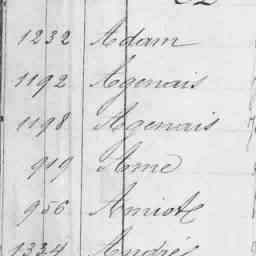 1232 Adam
1192 Agenais
1198 Agenais
919 Ame
956 Amiot
1334 Andrés